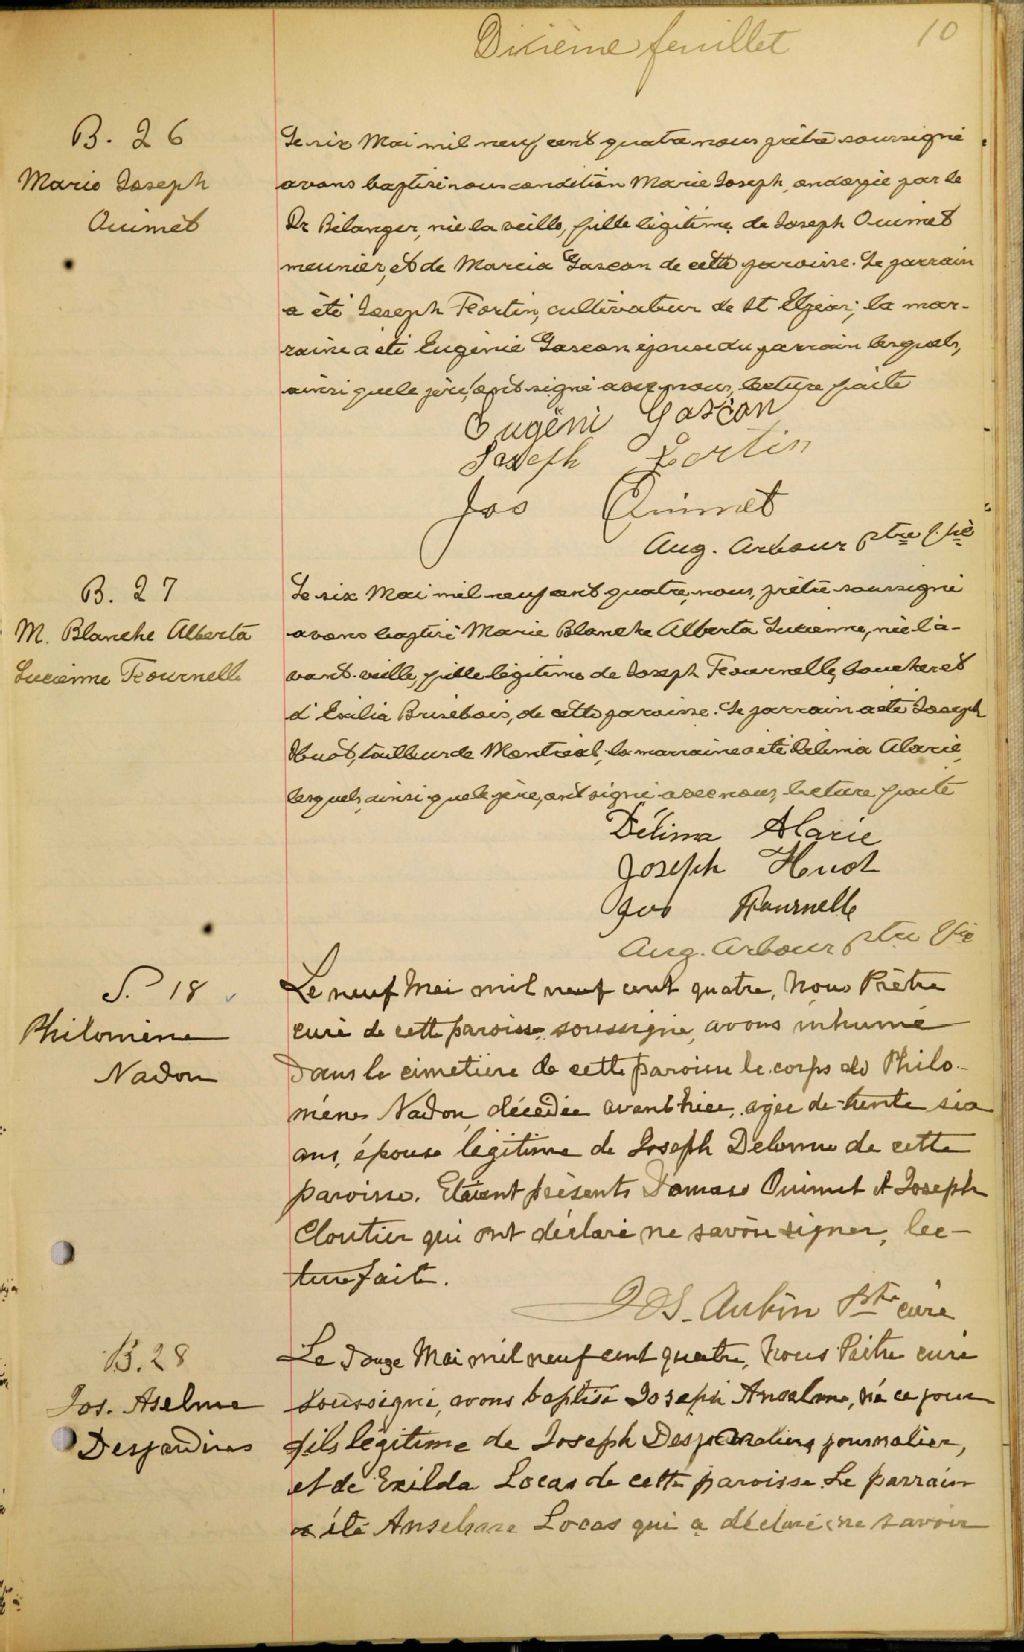 Dixième feuillet
10
B. 26
Marie Joseph
Ouimet
Le six Mai mil neuf cent quatre nous prêtre soussigné
avons baptisé sous condition Marie Joseph, ondoyée par le
Dr Bélanger, née la veille, fille légitime de Joseph Ouimet
meunier, et de Marcia Gascon de cette paroisse. Le parrain
a été Joseph Fortin, cultivateur de St Elzéar; la mar-
raine a été Eugénie Gascon épouse du parrain lesquels,
ainsi que le père, ont signé avec nous, lecture faite
Eugéni Gascon
Joseph Fortin
Jos Ouimet
Aug. Arbour ptre
B. 27
M. Blanche Alberta
Lucienne Fournelle
Le six Mai mil neuf cent quatre, nous, prêtre soussigné
avons baptisé Marie Blanche Alberta Lucienne, née l'a-
vant-veille, fille légitime de Joseph Fournelle, boucher et
d'Exilia Brisebois, de cette paroisse. Le parrain a été Joseph
Huot, tailleur de Montréal, la marraine a été Délima Alarie,
lesquels, ainsi que le père, ont signé avec nous, lecture faite
Délima Alarie
Joseph Huot
Jos Fournelle
Aug. Arbour ptre
S. 18
Philomène
Nadon
Le neuf Mai mil neuf cent quatre, Nous Prêtre
curé de cette paroisse, soussigné, avons inhumé
dans le cimetière de cette paroisse le corps de Philo-
mène Nadon, décédée avant hier, agée de trente six
ans, épouse légitime de Joseph Delorme de cette
paroisse. Etaient présents Damase Ouimet et Joseph
Cloutier qui ont déclaré ne savoir signer, lec-
ture faite.
Jos. Aubin Ptre curé
B. 28
Jos. Aselme
Desjardines
Le douze Mai mil neuf cent quatre, Nous Prêtre curé
soussigné, avons baptisé Joseph Anselme, né ce jour
fils légitime de Joseph Desjardins, journalier,
et de Exilda Locas de cette paroisse. Le parrain
a été Anselme Locas qui a déclaré ne savoir